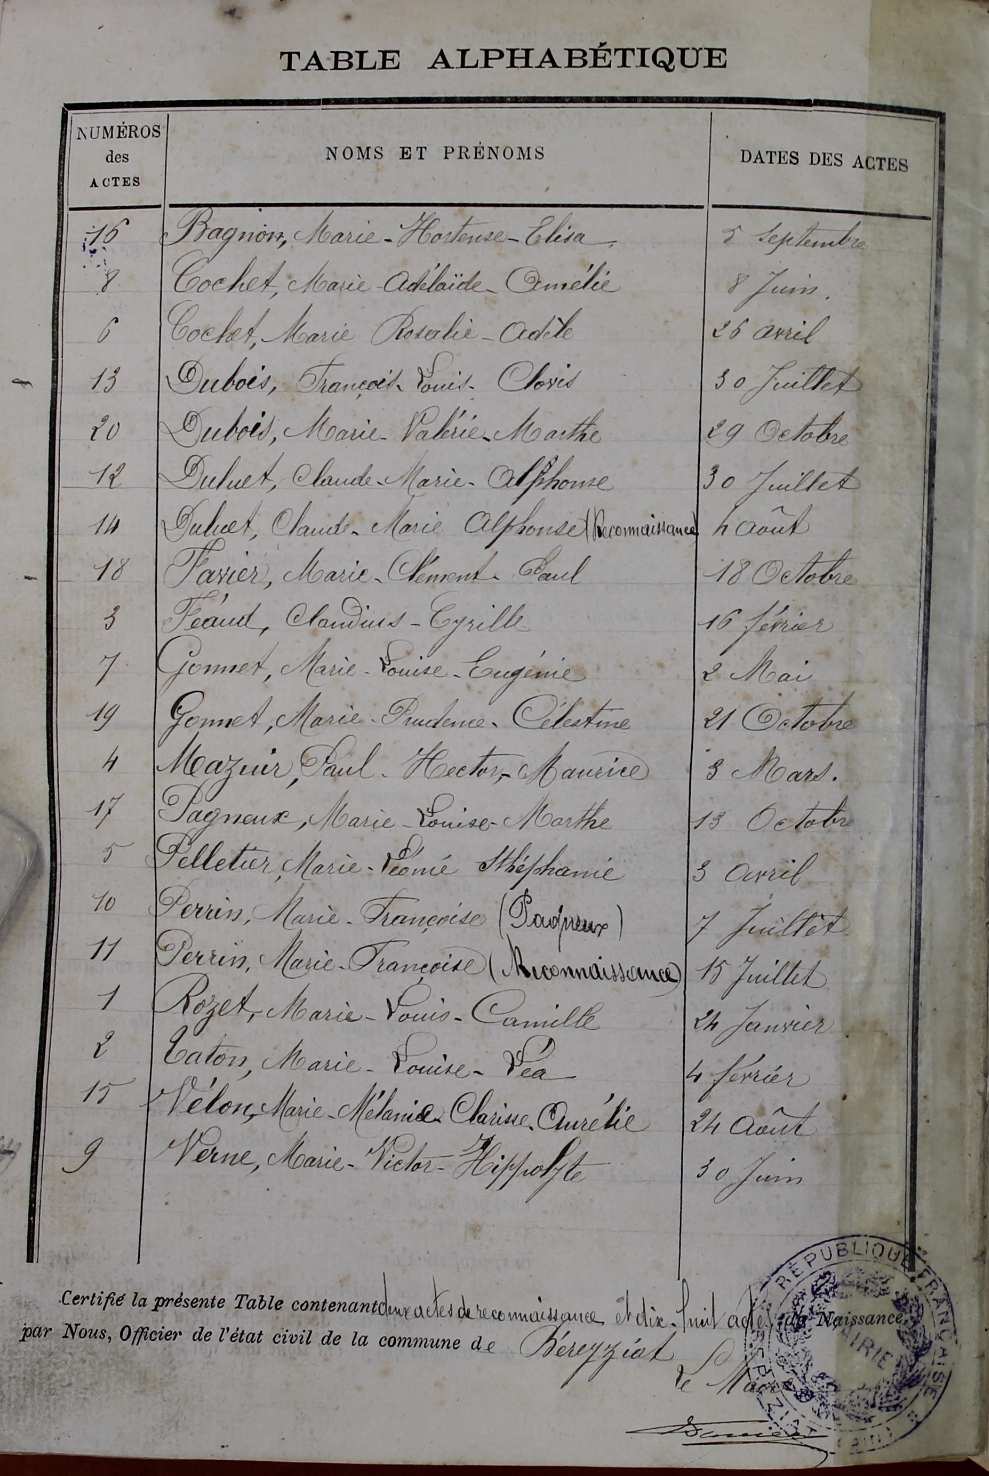 TABLE ALPHABÉTIQUE
NUMÉROS des ACTES NOMS ET PRÉNOMS DATES DES ACTES
16 Bagnion, Marie-Hortense-Elisa. 5 Septembre
8 Cochet, Marie Adélaïde-Amélie 8 Juin.
6 Cochet, Marie Rosalie-Adèle 26 avril
13 Dubois, François-Louis-Clovis 30 Juillet
20 Dubois, Marie-Valérie-Marthe 29 Octobre
12 Duluet, Claude-Marie-Alphonse 30 Juillet
14 Duluet, Claude-Marie Alphonse (Reconnaissance) 4 Août
18 Favier, Marie-Clément-Paul 18 Octobre
3 Féaud, Claudius-Cyrille 16 février
7 Gonnet, Marie-Louise-Eugénie 2 Mai
19 Gonnet, Marie-Prudence-Célestine 21 Octobre
4 Mazuir, Paul-Hector-Maurice 3 Mars.
17 Pagneux, Marie-Louise-Marthe 13 Octobre
5 Pelletier, Marie-Léonie Sthéphanie 3 avril
10 Perrin, Marie-Françoise (Pagneux) 7 Juillet
11 Perrin, Marie-Françoise (Reconnaissance) 15 Juillet
1 Rozet, Marie-Louis-Camille 24 Janvier
2 Taton, Marie-Louise-Léa 4 février
15 Vélon, Marie-Mélanie-Clarisse-Aurélie 24 Août
9 Verne, Marie-Victor-Hippolyte 30 Juin
Certifié la présente Table contenant deux actes de reconnaissance et dix-huit actes de Naissance
par Nous, Officier de l'état civil de la commune de Béreyziat
Le Maire
RÉPUBLIQUE FRANÇAISE
MAIRIE